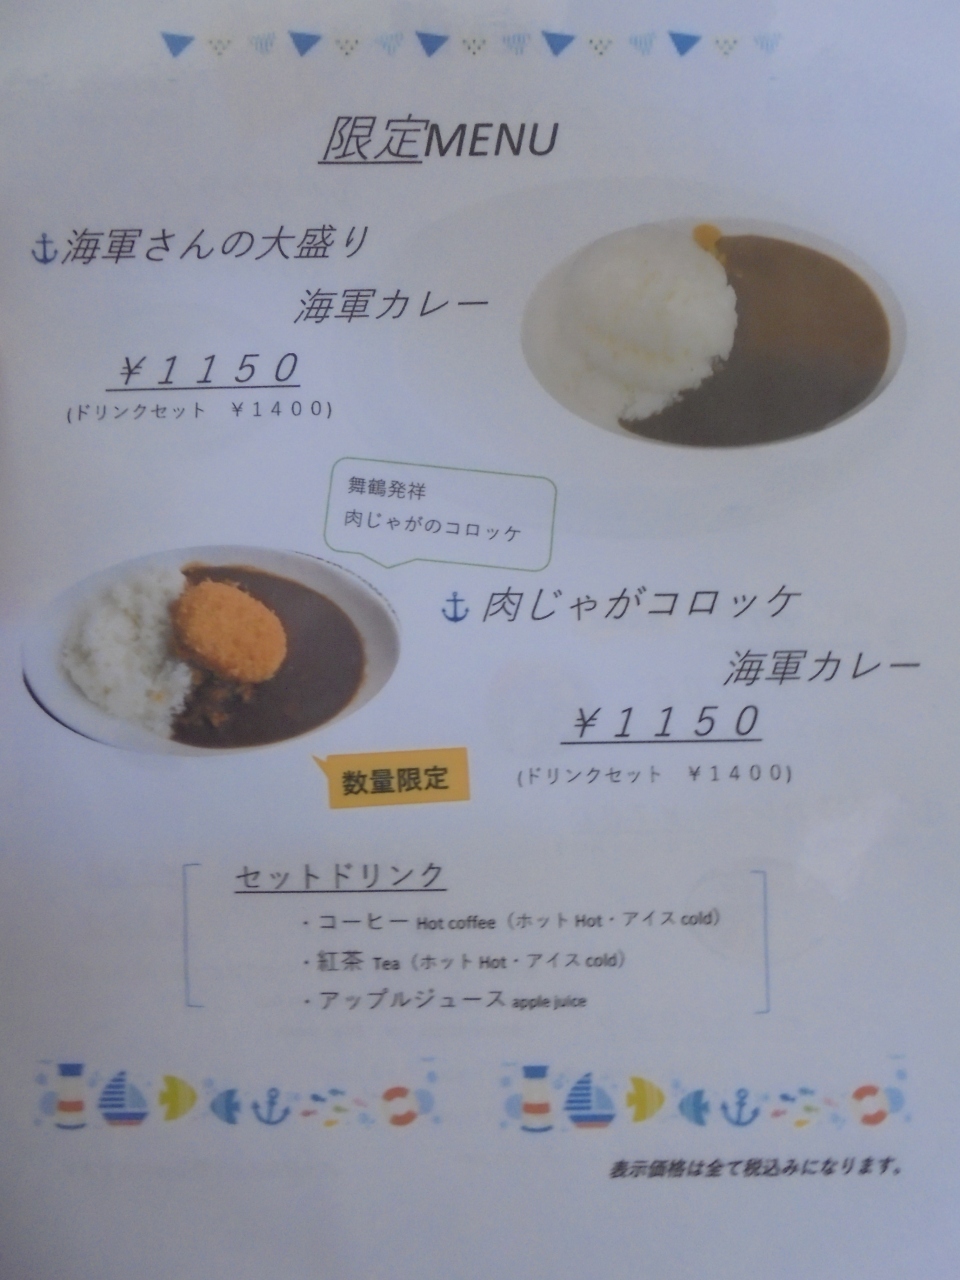 限定MENU
海軍さんの大盛り
海軍カレー
￥１１５０
(ドリンクセット　￥１４００)
舞鶴発祥
肉じゃがのコロッケ
肉じゃがコロッケ
海軍カレー
￥１１５０
(ドリンクセット　￥１４００)
数量限定
セットドリンク
・コーヒー Hot coffee（ホット Hot・アイス cold）
・紅茶 Tea（ホット Hot・アイス cold）
・アップルジュース apple juice
表示価格は全て税込みになります。